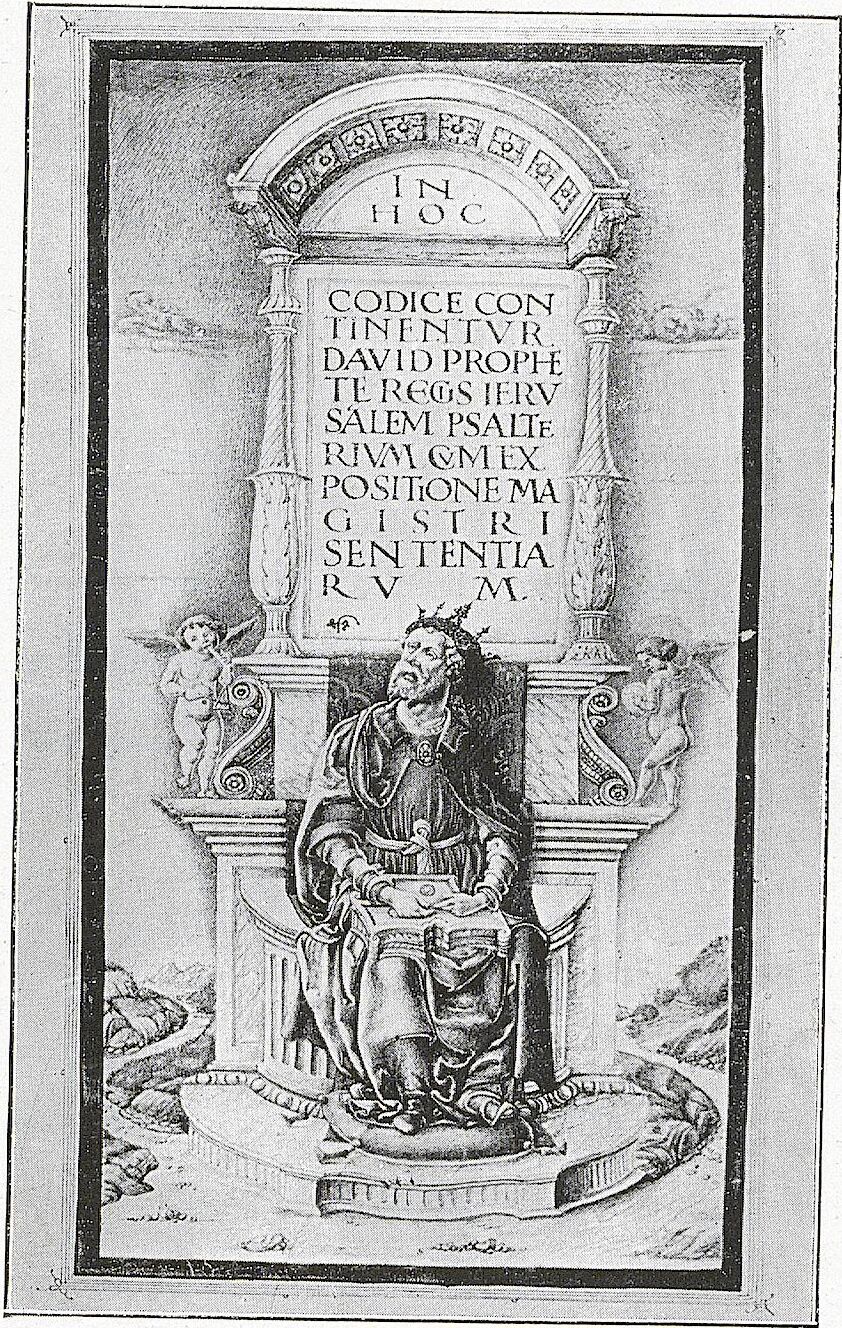 IN
HOC
CODICE CON
TINENTVR
DAVID PROPHE
TE REGIS IERV
SALEM PSALTE
RIVM CVM EX
POSITIONE MA
GISTRI
SENTENTIA
RVM.